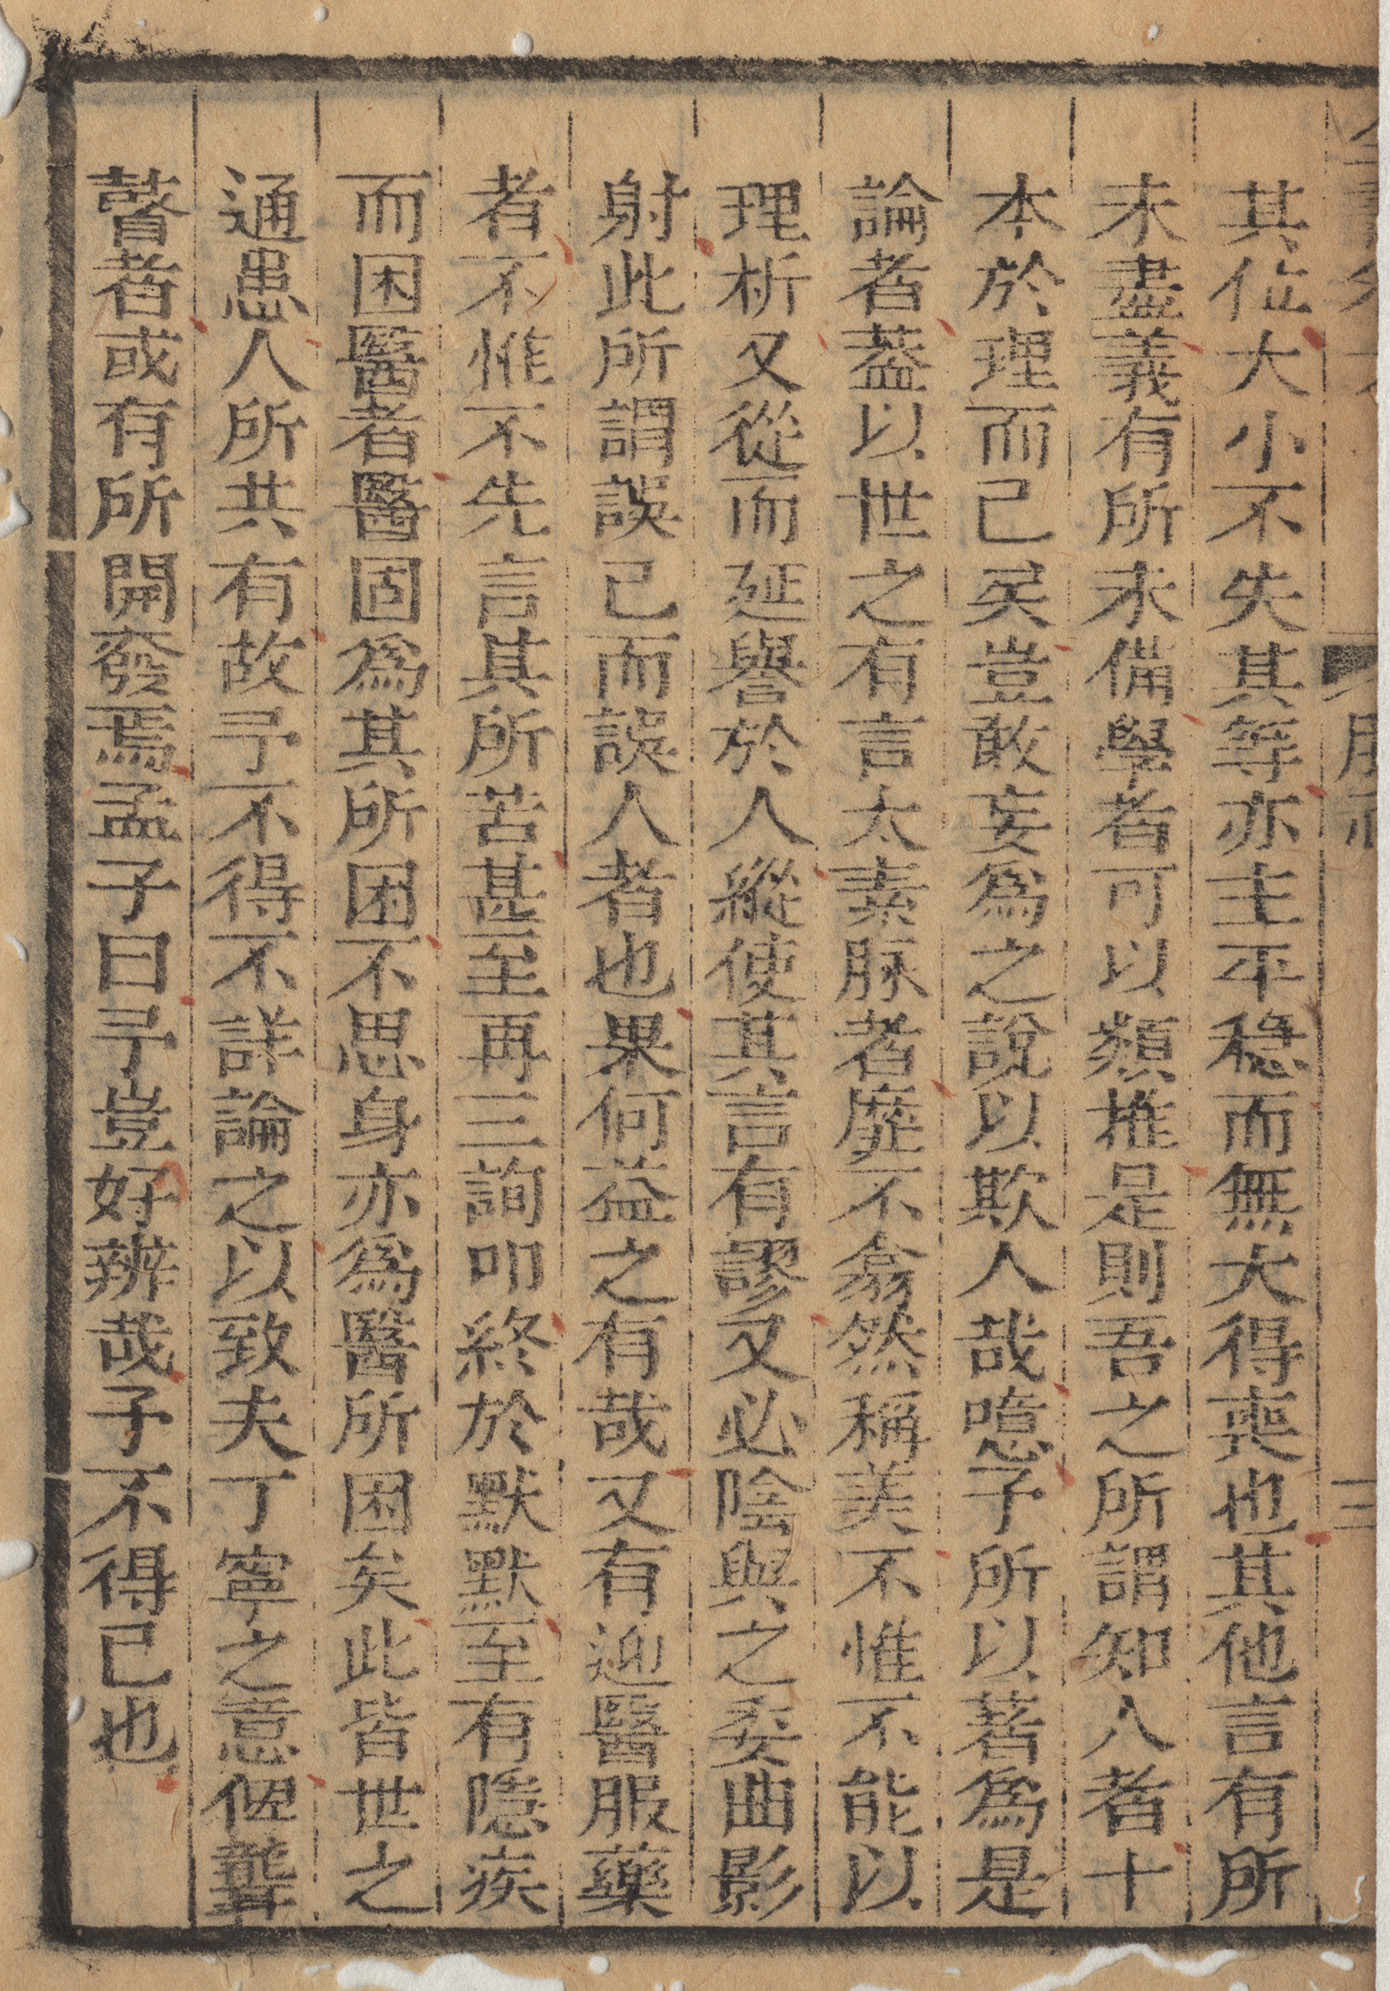 其位大小不失其等亦主平穩而無大得喪也其他言有所
未盡義有所未備學者可以類推是則吾之所謂知人者十
本於理而已矣豈敢妄為之說以欺人哉噫予所以著為是
論者蓋以世之有言太素脉者靡不翕然稱美不惟不能以
理析又從而延譽於人縱使其言有謬又必陰與之委曲影
射此所謂誤已而誤人者也果何益之有哉又有迎醫服藥
者不惟不先言其所苦甚至再三詢叩終於默默至有隱疾
而困醫者醫固為其所困不思身亦為醫所困矣此皆世之
通患人所共有故予不得不詳論之以致夫丁寧之意俾聾
瞽者或有所開發焉孟子曰予豈好辨哉予不得已也
三